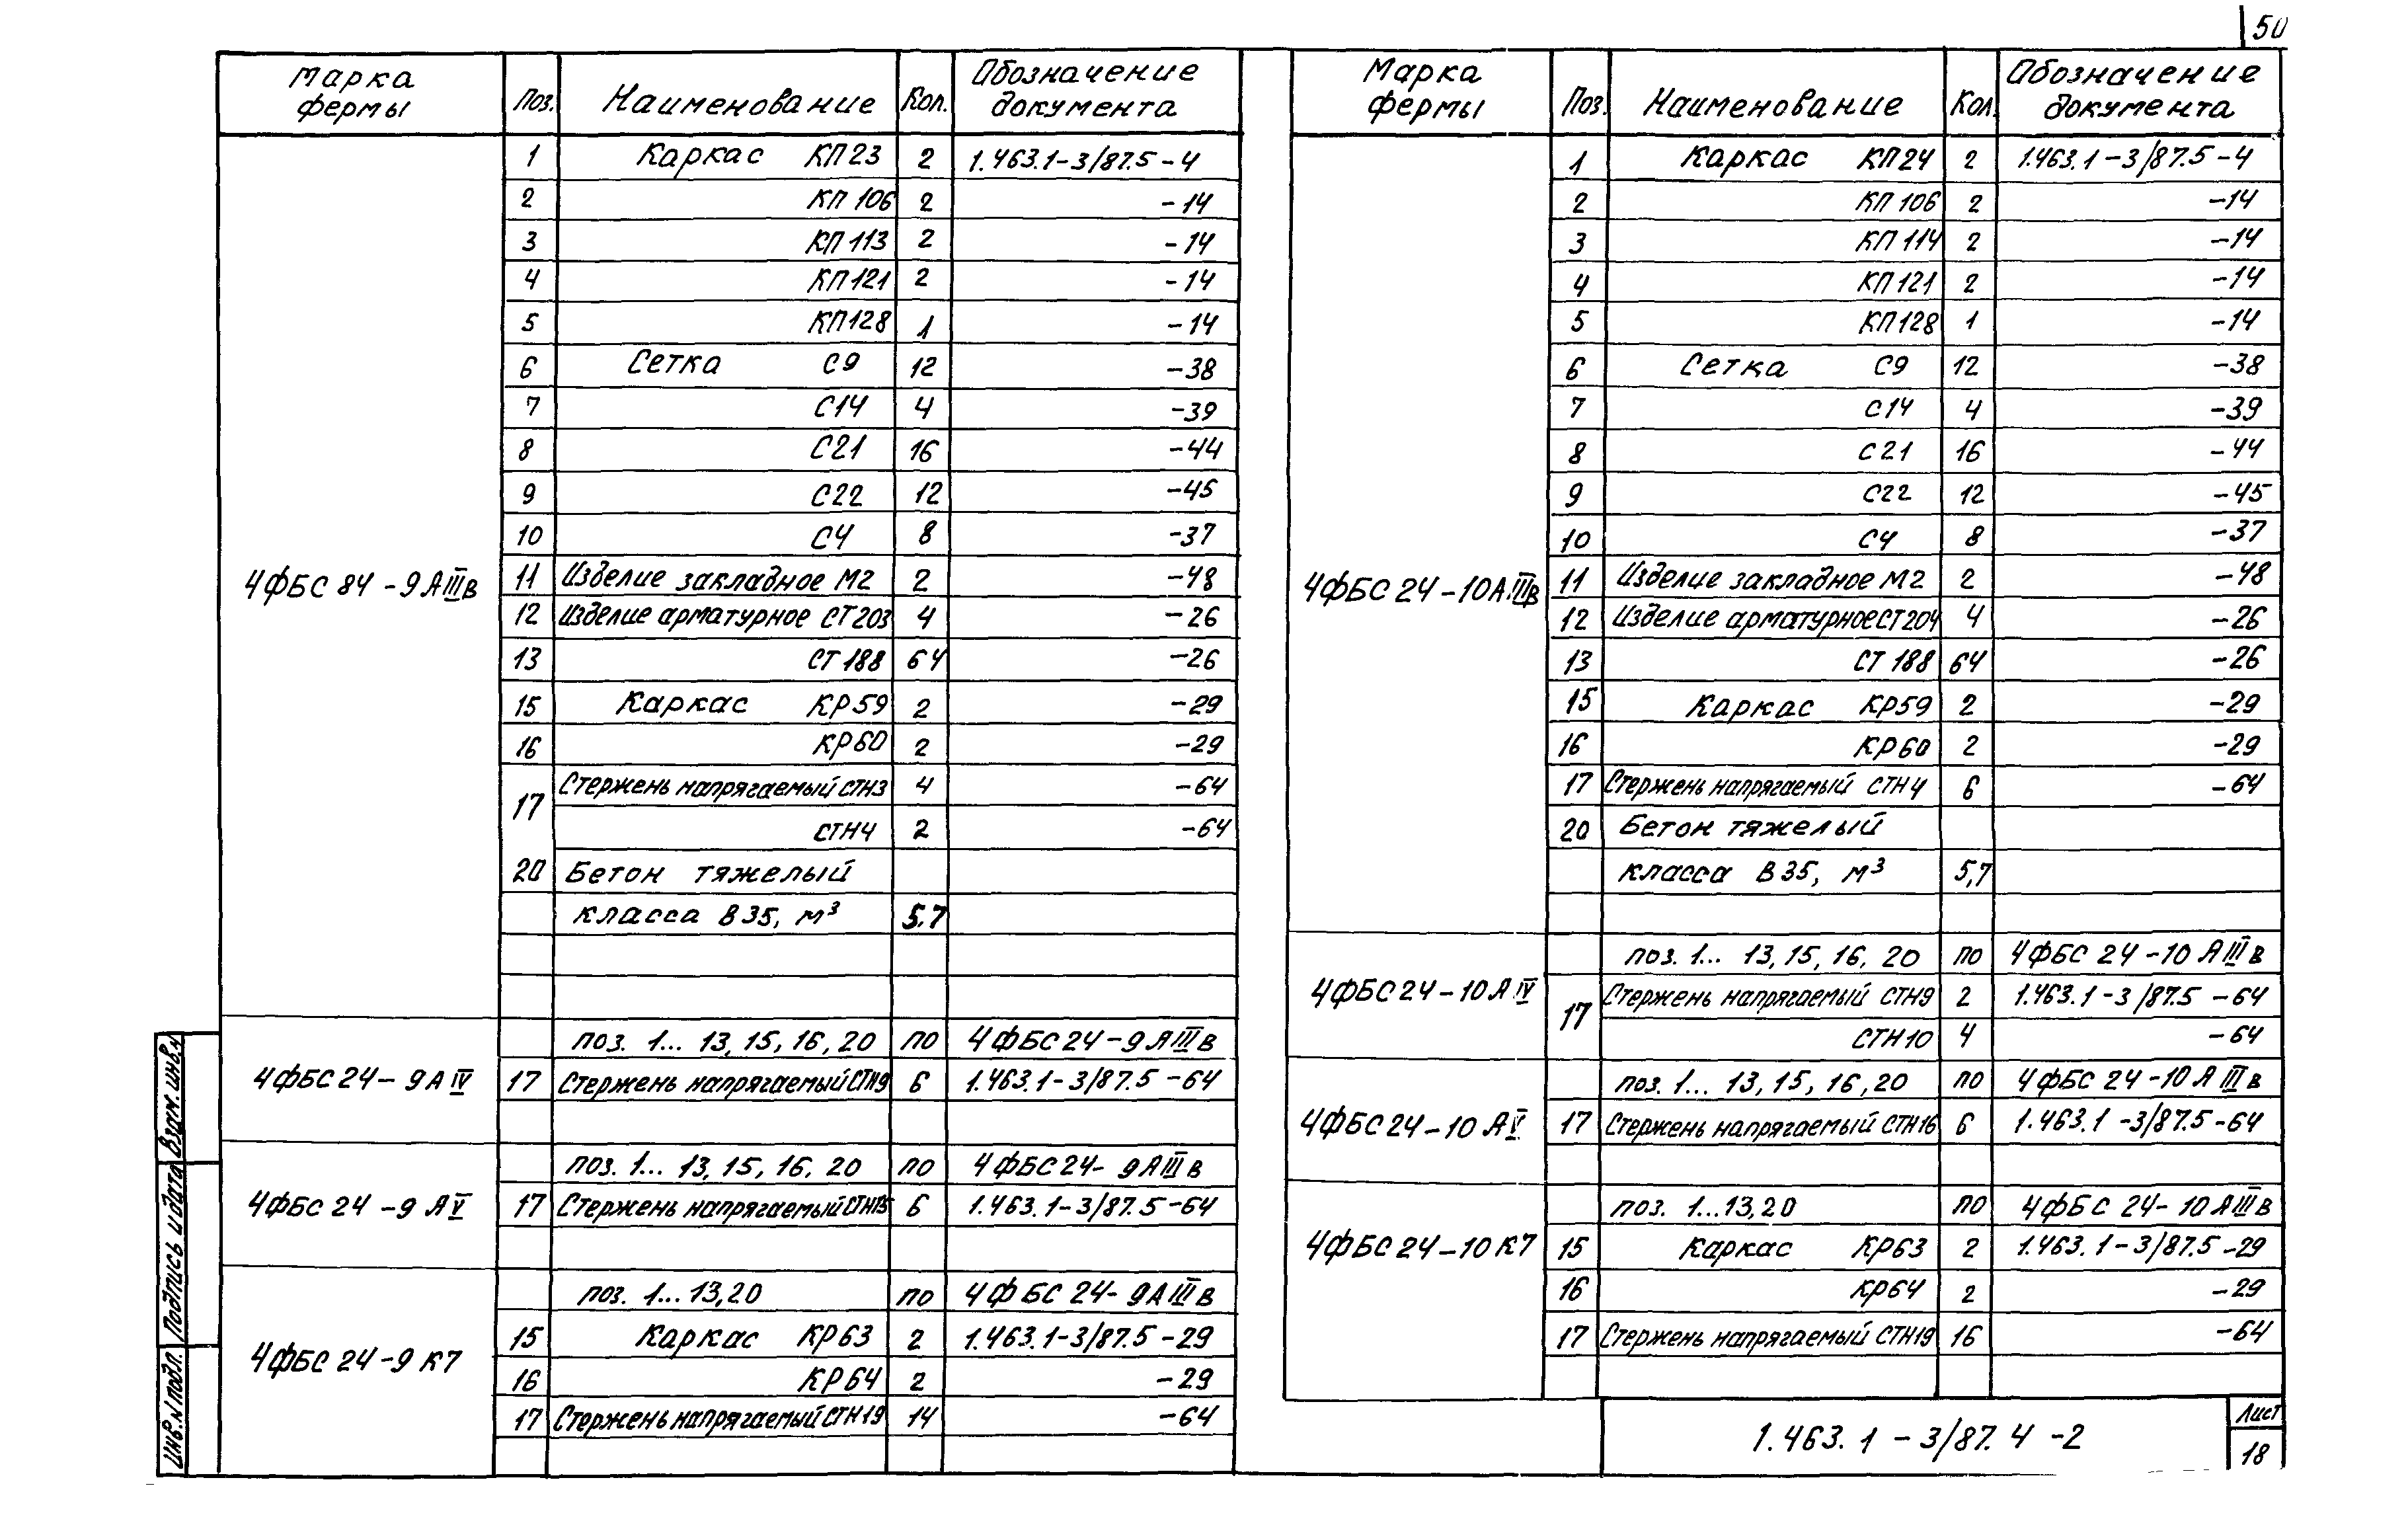 50
Марка фермы Поз. Наименование Кол. Обозначение документа
4ФБС 84-9АIIIв
1 Каркас КП23 2 1.463.1-3/87.5-4
2 КП106 2 -14
3 КП113 2 -14
4 КП121 2 -14
5 КП128 1 -14
6 Сетка С9 12 -38
7 С14 4 -39
8 С21 16 -44
9 С22 12 -45
10 С4 8 -37
11 Изделие закладное М2 2 -48
12 Изделие арматурное СТ203 4 -26
13 СТ188 64 -26
15 Каркас КР59 2 -29
16 КР60 2 -29
17 Стержень напрягаемый СТН3 4 -64
СТН4 2 -64
20 Бетон тяжелый
класса В35, м³ 5,7
4ФБС24-9АIV
поз. 1... 13, 15, 16, 20 по 4ФБС24-9АIIIв
17 Стержень напрягаемый СТН9 6 1.463.1-3/87.5-64
4ФБС24-9АV
поз. 1... 13, 15, 16, 20 по 4ФБС24-9АIIIв
17 Стержень напрягаемый СТН15 6 1.463.1-3/87.5-64
4ФБС24-9К7
поз. 1... 13,20 по 4ФБС24-9АIIIв
15 Каркас КР63 2 1.463.1-3/87.5-29
16 КР64 2 -29
17 Стержень напрягаемый СТН19 14 -64
Марка фермы Поз. Наименование Кол. Обозначение документа
4ФБС24-10АIIIв
1 Каркас КП24 2 1.463.1-3/87.5-4
2 КП106 2 -14
3 КП114 2 -14
4 КП121 2 -14
5 КП128 1 -14
6 Сетка С9 12 -38
7 С14 4 -39
8 С21 16 -44
9 С22 12 -45
10 С4 8 -37
11 Изделие закладное М2 2 -48
12 Изделие арматурное СТ204 4 -26
13 СТ188 64 -26
15 Каркас КР59 2 -29
16 КР60 2 -29
17 Стержень напрягаемый СТН4 6 -64
20 Бетон тяжелый
класса В35, м³ 5,7
4ФБС24-10АIV
поз. 1... 13, 15, 16, 20 по 4ФБС24-10АIIIв
17 Стержень напрягаемый СТН9 2 1.463.1-3/87.5-64
СТН10 4 -64
4ФБС24-10АV
поз. 1... 13, 15, 16, 20 по 4ФБС24-10АIIIв
17 Стержень напрягаемый СТН16 6 1.463.1-3/87.5-64
4ФБС24-10К7
поз. 1...13,20 по 4ФБС24-10АIIIв
15 Каркас КР63 2 1.463.1-3/87.5-29
16 КР64 2 -29
17 Стержень напрягаемый СТН19 16 -64
1.463.1-3/87.4-2
Лист
18
Взам. инв. №
Подпись и дата
Инв. № подл.